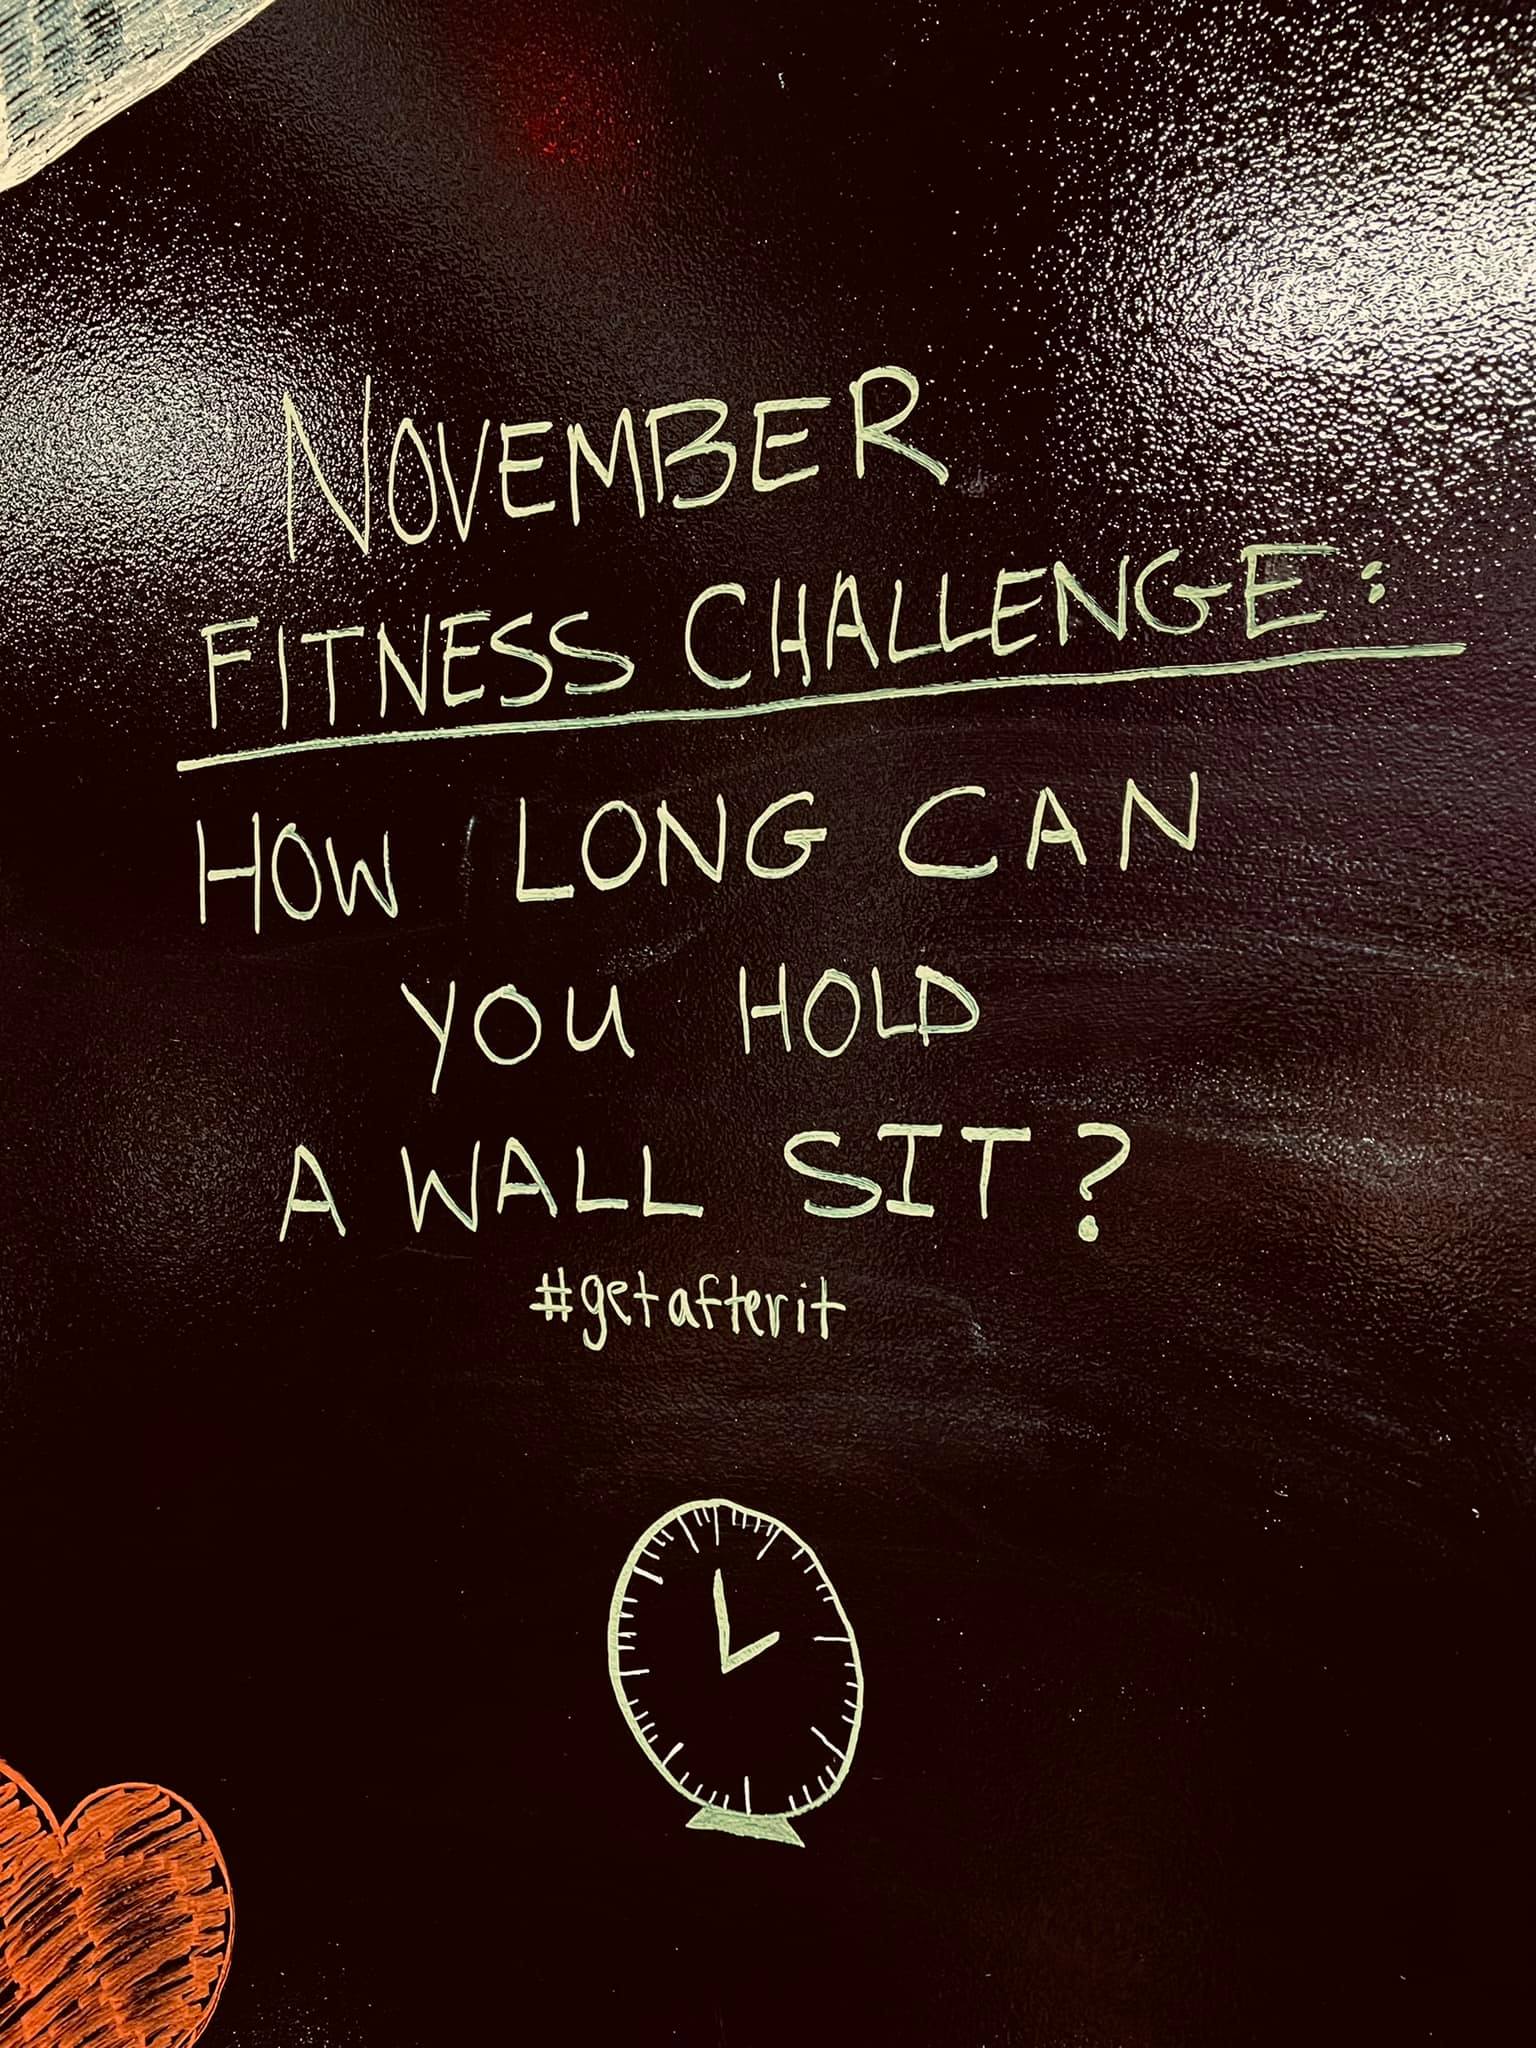 NOVEMBER
FITNESS CHALLENGE:
HOW LONG CAN
YOU HOLD
A WALL SIT?
#getafterit